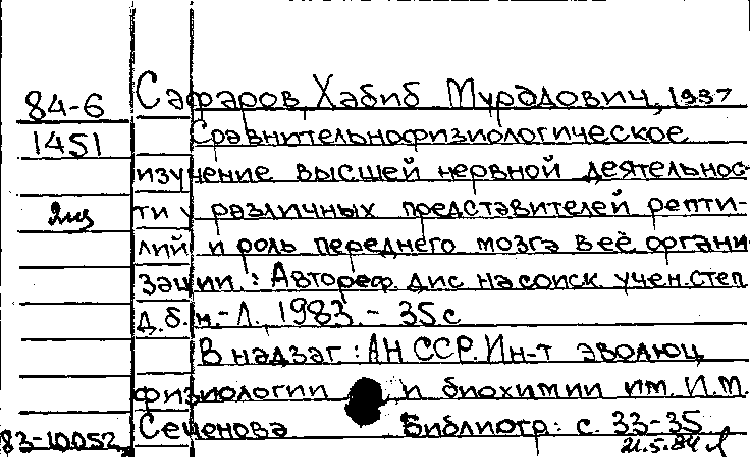 84-6 Сафаров, Хабиб Мурадович, 1937
1451 Сравнительнофизиологическое
изучение высшей нервной деятельнос-
2 экз ти у различных представителей репти-
лий и роль переднего мозга в её органи
зации.: Автореф. дис на соиск. учен. степ
д.б.н.- Л., 1983.- 35 с
В надзаг: АН СССР. Ин-т эволюц
физиологии и биохимии им. И.М.
83-10052 Сеченова Библиогр: с. 33-35
21.5.84